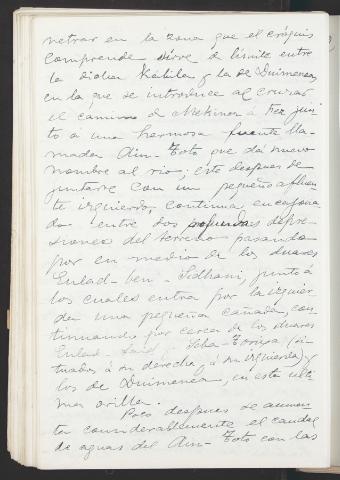 netrar en la zona que el cróquis
comprende sirve de límite entre
la dicha Kábila y la de Duimenea,
en la que se introduce al cruzar
el camino de Mekinez á Fez jun-
to á una hermosa fuente lla-
mada Ain-Toto que dá nuevo
nombre al rio; éste despues de
juntarse con un pequeño afluen-
te izquierdo, continua encajona-
do entre dos profundas depre-
siones del terreno pasando
por en medio de los duares
Eulad-ben-Sidhani, junto á
los cuales entra por la izquier-
da una pequeña cañada, con-
tinuando por cerca de los duares
Eulad (si-
tuados á su derecha y á su izquierda) y
los de Duimenea, en esta últi-
ma orilla.
Poco despues se aumen-
ta considerablemente el caudal
de aguas del Ain-Toto con las